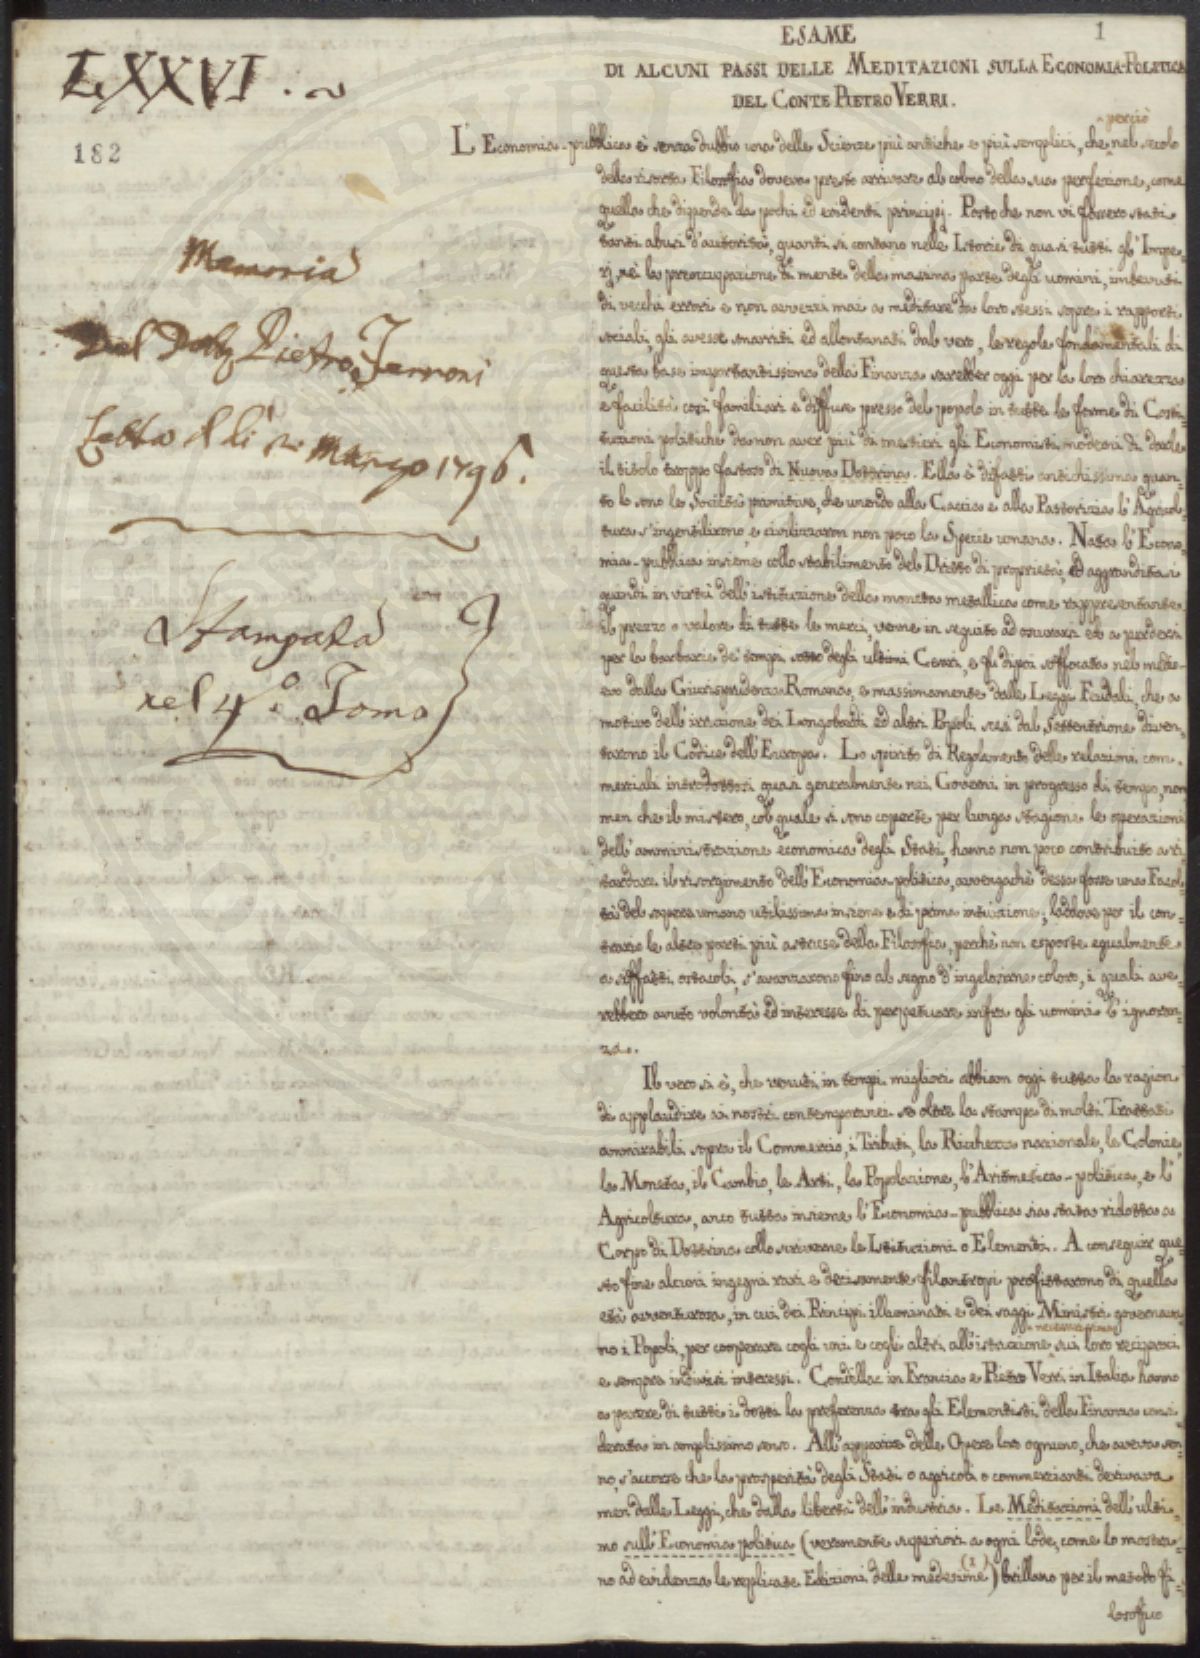 LXXVI. ~
182
Memoria
Del Dotto Pietro Ferroni
Letta il dì 2 Marzo 1796.
Stampata
nel 4.° Tomo
1
ESAME
DI ALCUNI PASSI DELLE MEDITAZIONI SULLA ECONOMIA-POLITICA
DEL CONTE PIETRO VERRI.
perciò
L'Economia-pubblica è senza dubbio una delle Scienze più antiche e più semplici, che nel secolo
della risorta Filosofia doveva presto arrivare al colmo della sua perfezione, come
quella che dipende da pochi ed evidenti principj. Posto che non vi fossero stati
tanti abusi d'autorità, quanti si contano nelle Istorie di quasi tutti gl'Impe-
rj, nè la preoccupazione di mente della massima parte degli uomini, imbevuti
di vecchi errori e non avvezzi mai a meditare da loro stessi sopra i rapporti
sociali, gli avesse smarriti ed allontanati dal vero, le regole fondamentali di
questa base importantissima della Finanza sarebber oggi per la loro chiarezza
e facilità così familiari e diffuse presso del popolo in tutte le forme di Costi-
tuzioni politiche da non aver più di mestieri gli Economisti moderni di darle
il titolo troppo fastoso di Nuova Dottrina. Ella è difatti antichissima quan-
to lo sono le Società primitive, che unendo alla Caccia e alla Pastorizia l'Agricol-
tura s'ingentilirono, e civilizzaron non poco la Specie umana. Nata l'Econo-
mia-pubblica insieme collo stabilimento del Dritto di proprietà, ed aggranditasi
quindi in virtù dell'istituzione della moneta metallica come rappresentante
il prezzo o valore di tutte le merci, venne in seguito ad oscurarsi ed a perdersi
per la barbarie de' tempi sotto degli ultimi Cesari, e fu dipoi soffocata nel medio-
evo dalla Giurisprudenza Romana, e massimamente dalle Leggi Feudali, che a
motivo dell'irruzione dei Longobardi ed altri Popoli scesi dal Settentrione diven-
tarono il Codice dell'Europa. Lo spirito di Regolamento delle relazioni com-
merciali introdottosi quasi generalmente nei Governi in progresso di tempo, non
men che il mistero, col quale si sono coperte per lunga stagione le operazioni
dell'amministrazione economica degli Stati, hanno non poco contribuito a ri-
tardare il risorgimento dell'Economia-politica, avvengachè dessa fosse una Facol-
tà del sapere umano utilissima insieme e di prima intuizione; laddove per il con-
trario le altre parti più astruse della Filosofia, perchè non esposte egualmente
a siffatti ostacoli, s'avanzarono fino al segno d'ingelosirne coloro, i quali ave-
rebbero avuto volontà ed interesse di perpetuare infra gli uomini l'ignoran-
za.
Il vero si è, che venuti in tempi migliori abbiam oggi tutta la ragion
di applaudire ai nostri contemporanei se oltre la stampa di molti Trattati
ammirabili sopra il Commercio, i Tributi, la Ricchezza nazionale, le Colonie,
la Moneta, il Cambio, le Arti, la Popolazione, l'Aritmetica-politica, e l'
Agricoltura, anco tutta insieme l'Economia-pubblica sia stata ridotta a
Corpo di Dottrina collo scriverne le Istituzioni o Elementi. A conseguir que-
sto fine alcuni ingegni rari e decisamente filantropi profittarono di quella
età avventurosa, in cui dei Principi illuminati e dei saggi Ministri governan-
no i Popoli, per cooperare cogli uni e cogli altri all'istruzione sui loro reciproci
e sempre indivisi interessi. Condillac in Francia e Pietro Verri in Italia hanno
a parere di tutti i dotti la preferenza tra gli Elementisti della Finanza consi-
derata in amplissimo senso. All'apparire delle Opere loro ognuno, che aveva sen-
no, s'accorse che la prosperità degli Stati o agricoli o commercianti derivava
men dalle Leggi, che dalla libertà dell'industria. Le Meditazioni dell'ulti-
mo sull'Economia politica (veramente superiori a ogni lode, come lo mostra-
no ad evidenza le replicate Edizioni delle medesime) brillano per il metodo fi-
losofico